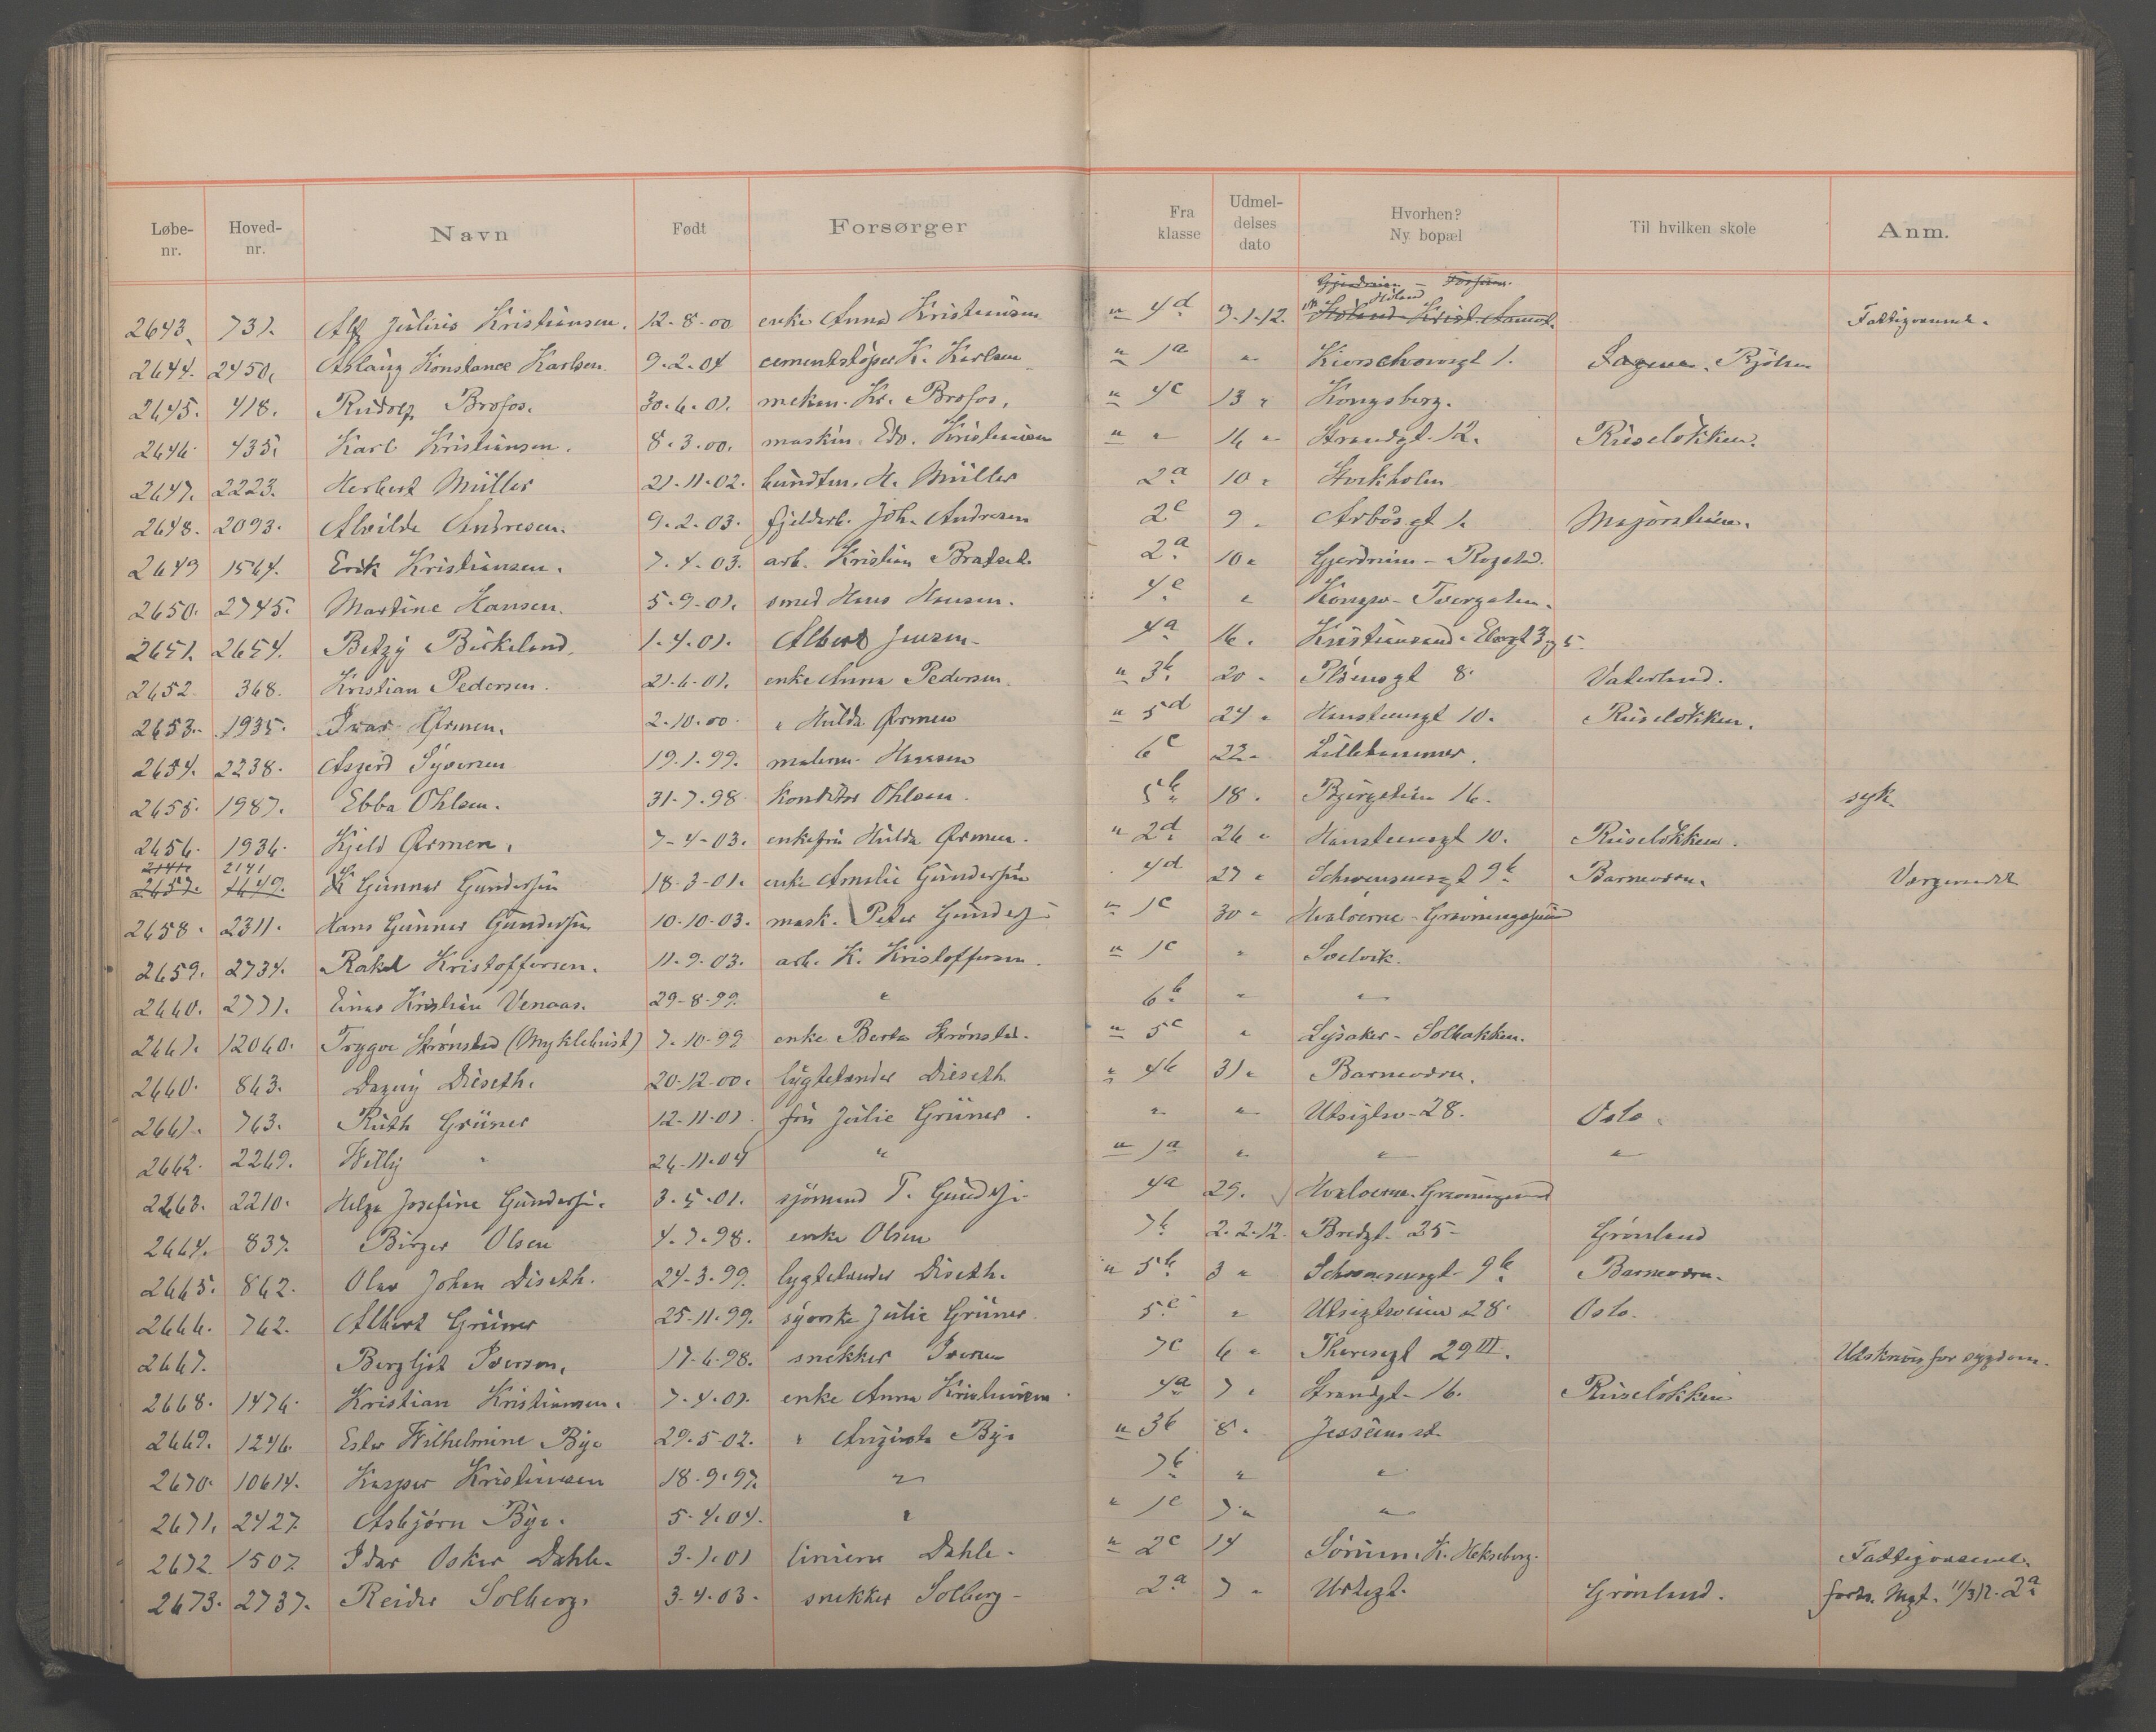 Løbe-nr. Hoved-nr. Navn Født Forsørger Fra klasse Udmel-delses dato Hvorhen? Ny bopæl Til hvilken skole Anm.
2643. 731. Alf Julius Kristiansen. 12-8-00 enke Anna Kristiansen " 4d 9-1-12. Høland Fattigvæsenet.
2644. 2450. Aslaug Konstance Karlsen. 9-2-04 cementstøper K. Karlsen " 1a " Kierschowsgt 1. Sagene. Bjølsen
2645. 418. Rudolf Brofos. 30-6-01. mekan. Kr. Brofos. " 4c 13 " Kongsberg.
2646. 435. Karl Kristiansen. 8-3-00. maskin. Edv. Kristiansen " " 16 " Strandgt. 12. Ruseløkken.
2647. 2223. Herbert Müller 21-11-02. H. Müller 2a 10 " Stockholm
2648. 2093. Alvilde Andresen. 9-2-03. Joh. Andresen 2c 9 " Arbosgt 1. Majorstuen.
2649 1564. Erik Kristiansen. 7-4-03. arb. Kristian 2a 10 " Gjerdrum - Rogstad.
2650. 2745. Martine Hansen. 5-9-01. smed Hans Hansen. 4c "
2651. 2654. Betzy Birkeland. 1-4-01. Albert Jensen 4a 16. Kristiansand
2652. 368. Kristian Pedersen. 21-6-01. enke Anna Pedersen. " 3b 20 " Pløensgt 8. Vaterland.
2653. 1935. Ivar Ørmen. 2-10-00 " Hulda Ørmen " 5d 24 " Hansteensgt 10. Ruseløkken.
2654. 2238. Asgerd Syversen 19-1-99. malerm. Hanssen 6c 22 " Lillehammer.
2655. 1987. Ebba Ohlsen. 31-7-98 konditor Ohlsen. 5b 18 " 16. syk.
2656. 1936. Kjeld Ørmen. 7-4-03. enkefru Hulda Ørmen. " 2d 26 " Hansteensgt 10. Ruseløkken.
2657. 2141 Gunnar Gundersen 18-3-01. enke Amalie Gundersen 4d 27 " Schwensensgt 9b Barnevern. Vergeraadet
2658. 2311. Hans Gunnar Gundersen 10-10-03. mask. Peter Gundersen " 1c 30 " Hvaløerne - Gravningssund
2659. 2734. Rakel Kristoffersen. 11-9-03. arb. K. Kristoffersen. " 1c " Svelvik.
2660. 2771. Einar Kristian Venaas. 29-8-99. " 6b " "
2661. 12060. Trygve Strønstad (Myklebust) 7-10-99 enke Berta Strønstad. " 5c " Lysaker - Solbakken.
2660. 863. Dagny Diseth. 20-12-00. lygtetænder Diseth " 4b 31 " Barnevern.
2661. 763. Ruth Grüner 12-11-01. fru Julie Grüner. " " Utsigtsv. 28. Oslo.
2662. 2269. Willy " 26-11-04 " " 1a " " "
2663. 2210. Helga Josefine Gundersen. 3-5-01. sjømand T. Gundersen 4a 29. Hvaløerne. Gravningssund
2664. 837. Birger Olsen 4-7-98. enke Olsen 7b 2-2-12. Bredgt. 25 - Grønland
2665. 862. Olav Johan Diseth. 24-3-99. lygtetænder Diseth. " 5b 3 " Schwensensgt 9b Barnevern.
2666. 762. Albert Grüner 25-11-99. syerske Julie Grüner. 5c " Utsigtsveien 28. Oslo.
2667. Bergljot Iversen. 17-6-98. snekker Iversen 7c 6 " Theresegt 29 III. Utskrevet for sygdom.
2668. 1476. Kristian Kristiansen. 7-4-01. enke Anna Kristiansen. 4a 7 " Strandgt. 16. Ruseløkken
2669. 1246. Ester Wilhelmine Bye 29-5-02. " Augusta Bye " 3b 8. Jessheim st.
2670. 10614. Kaspar Kristiansen 18-9-97. " 7b " "
2671. 2427. Asbjørn Bye. 5-4-04. " " 1c 7 " "
2672. 1507. Idar Oskar Dahle. 3-1-01 Dahle. " 2c 14 Sørum. K. Hekseberg. Fattigvæsenet.
2673. 2737. Reidar Solberg. 3-4-03. snekker Solberg - 2a 7 " Urtegt. Grønland. 11/3 12. 2a